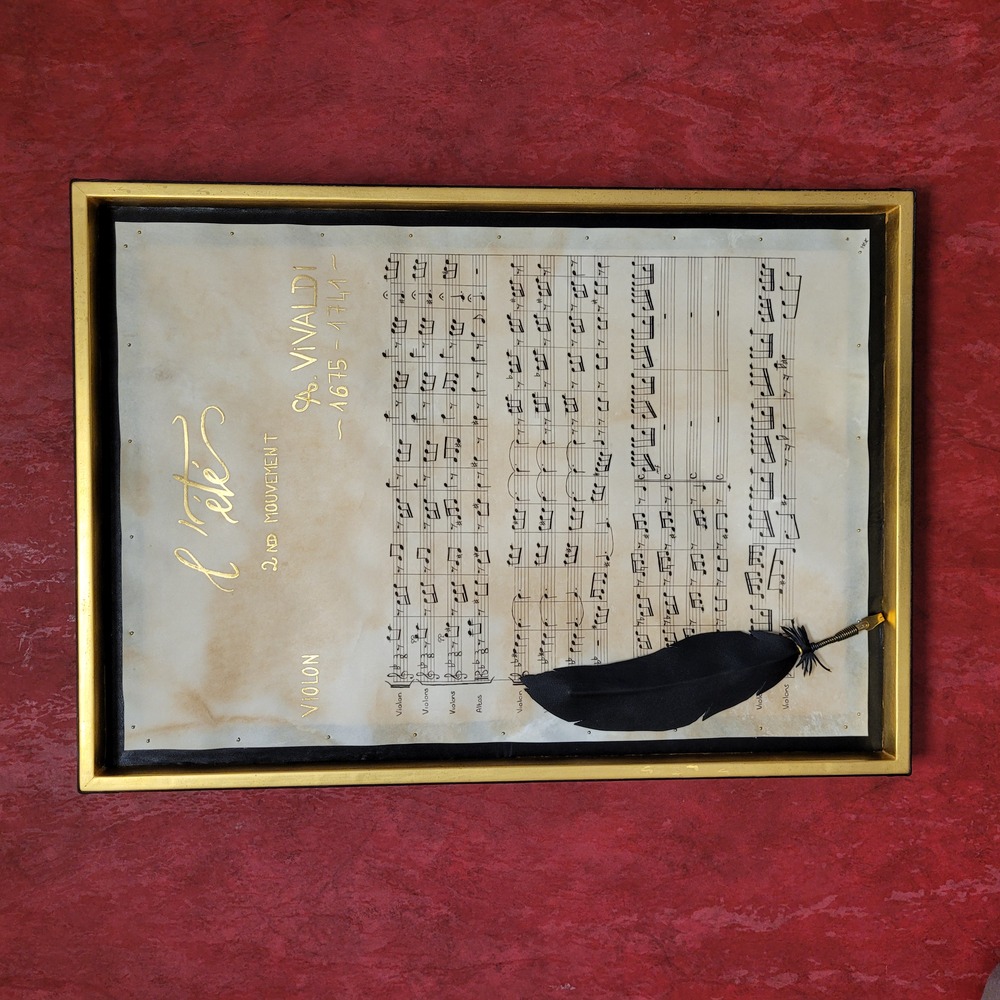 l'été
2ND MOUVEMENT
VIOLON
A. ViVALDI
- 1675 - 1741 -
Violon
Violons
Violons
Altos
Violon
Violons